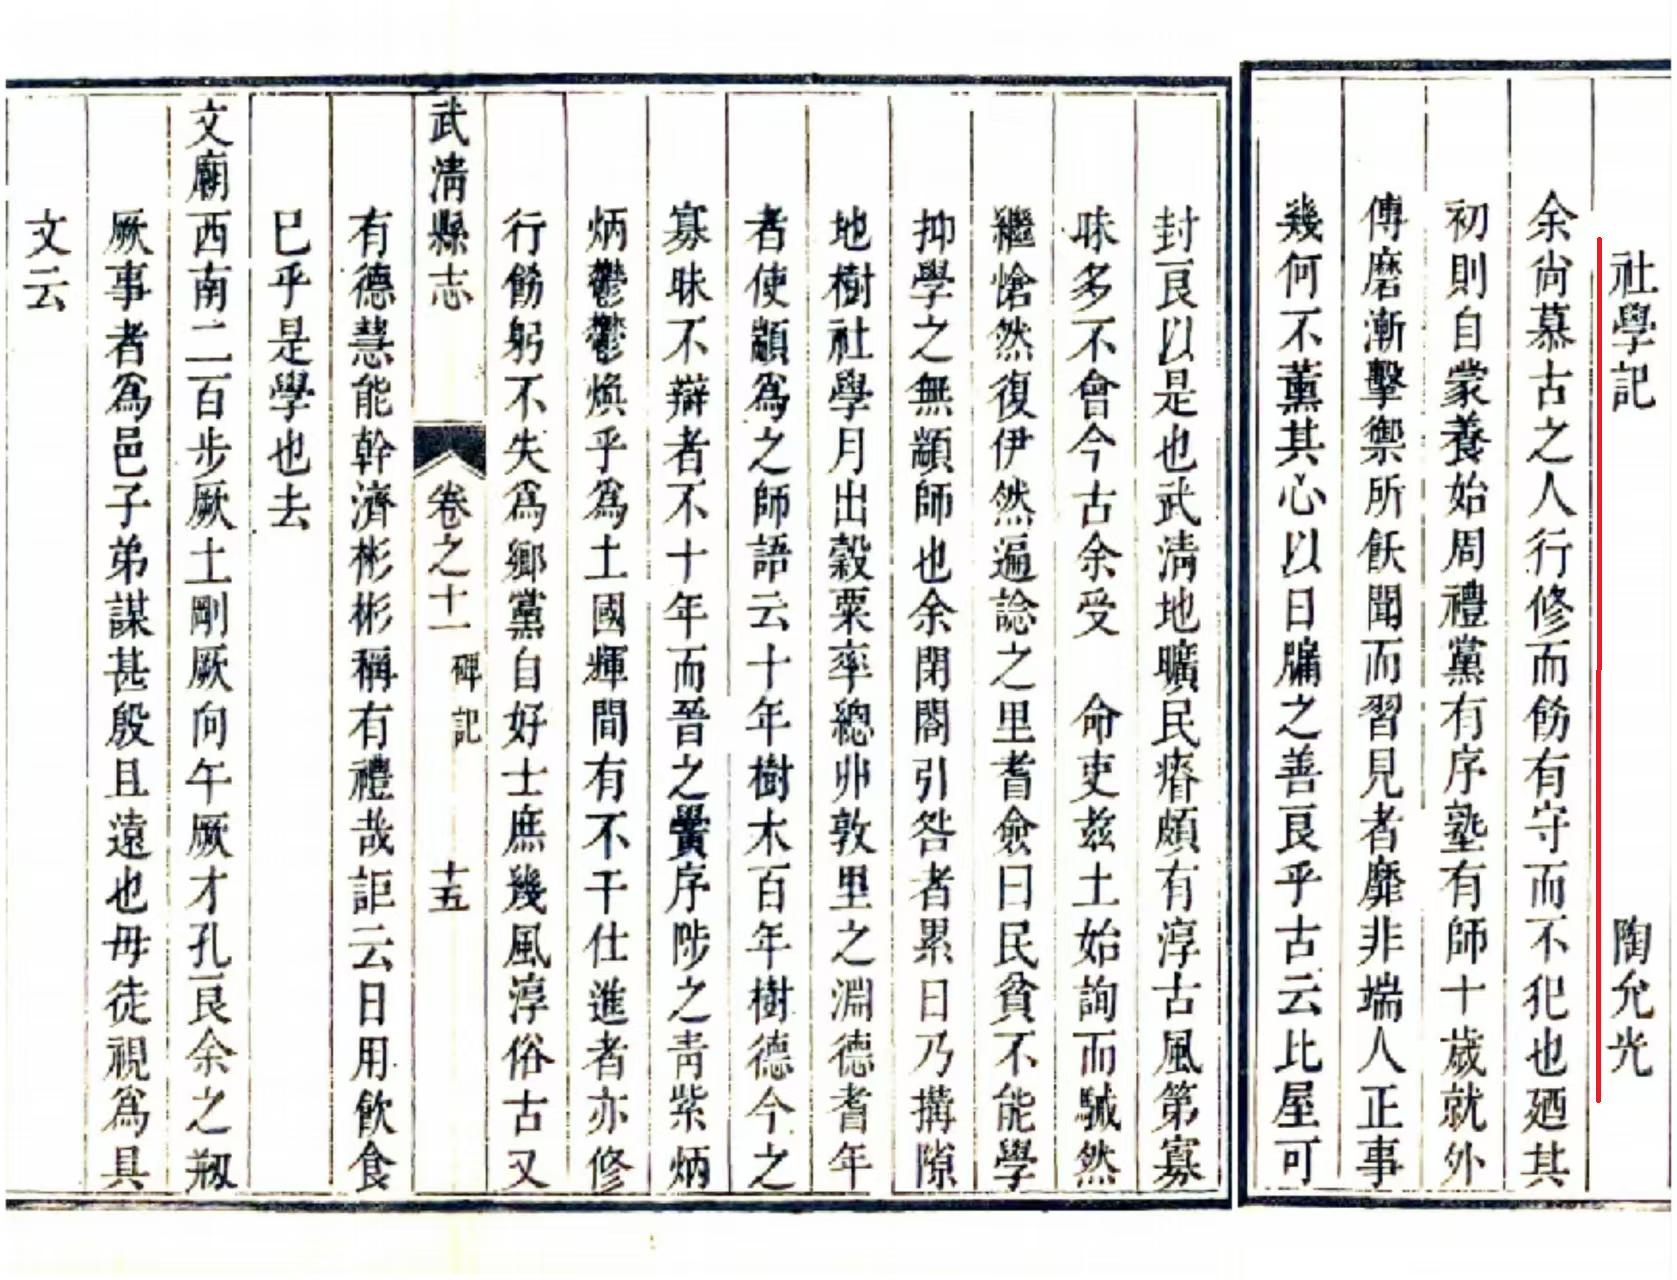 社學記 陶允光
余尙慕古之人行修而飭有守而不犯也廼其
初則自蒙養始周禮黨有序塾有師十歲就外
傅磨漸擊禦所飫聞而習見者靡非端人正事
幾何不薰其心以日牖之善良乎古云比屋可
封良以是也武淸地曠民瘠頗有淳古風第寡
昧多不會今古余受 命吏兹土始詢而駴然
繼愴然復伊然遍諗之里耆僉曰民貧不能學
抑學之無顓師也余閉閤引咎者累日乃搆隙
地樹社學月出穀粟率總丱敦里之淵德耆年
者使顓爲之師語云十年樹木百年樹德今之
寡昧不辯者不十年而晉之黌序陟之靑紫炳
炳鬱鬱煥乎爲土國輝間有不干仕進者亦修
行飭躬不失爲鄉黨自好士庶幾風淳俗古又
武淸縣志 卷之十一 碑記 十五
有德慧能幹濟彬彬稱有禮哉詎云日用飮食
已乎是學也去
文廟西南二百步厥土剛厥向午厥才孔良余之剏
厥事者爲邑子弟謀甚殷且遠也毋徒視爲具
文云